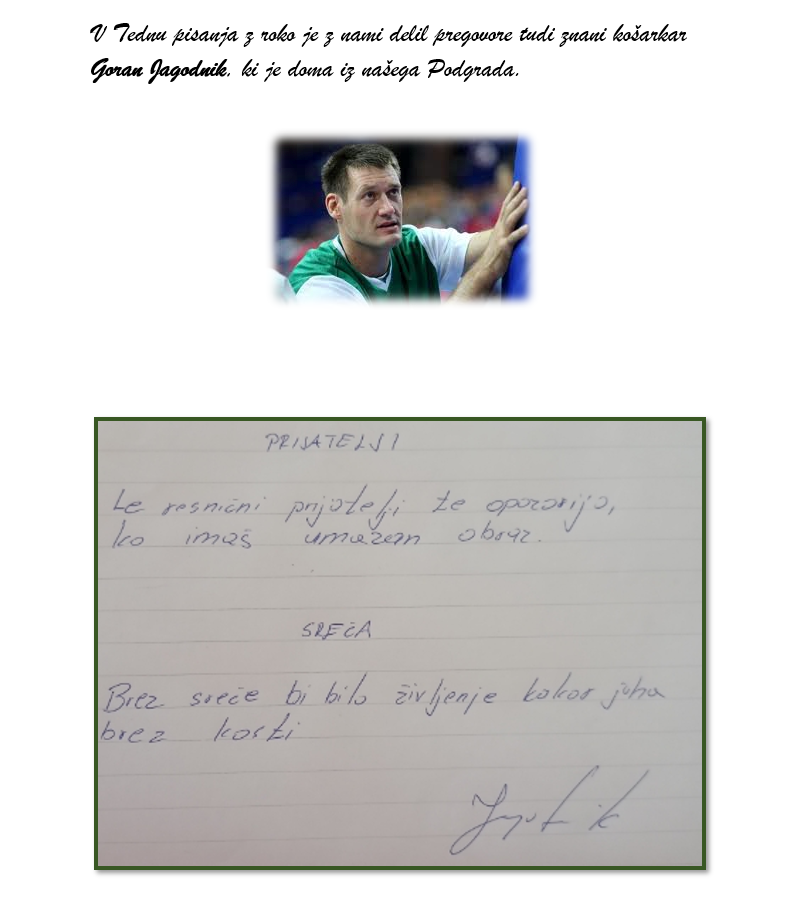 V Tednu pisanja z roko je z nami delil pregovore tudi znani košarkar
Goran Jagodnik, ki je doma iz našega Podgrada.
PRIJATELJI
Le resnični prijatelji te opozorijo,
ko imaš umazan obraz.
SREČA
Brez sreče bi bilo življenje kakor juha
brez kosti